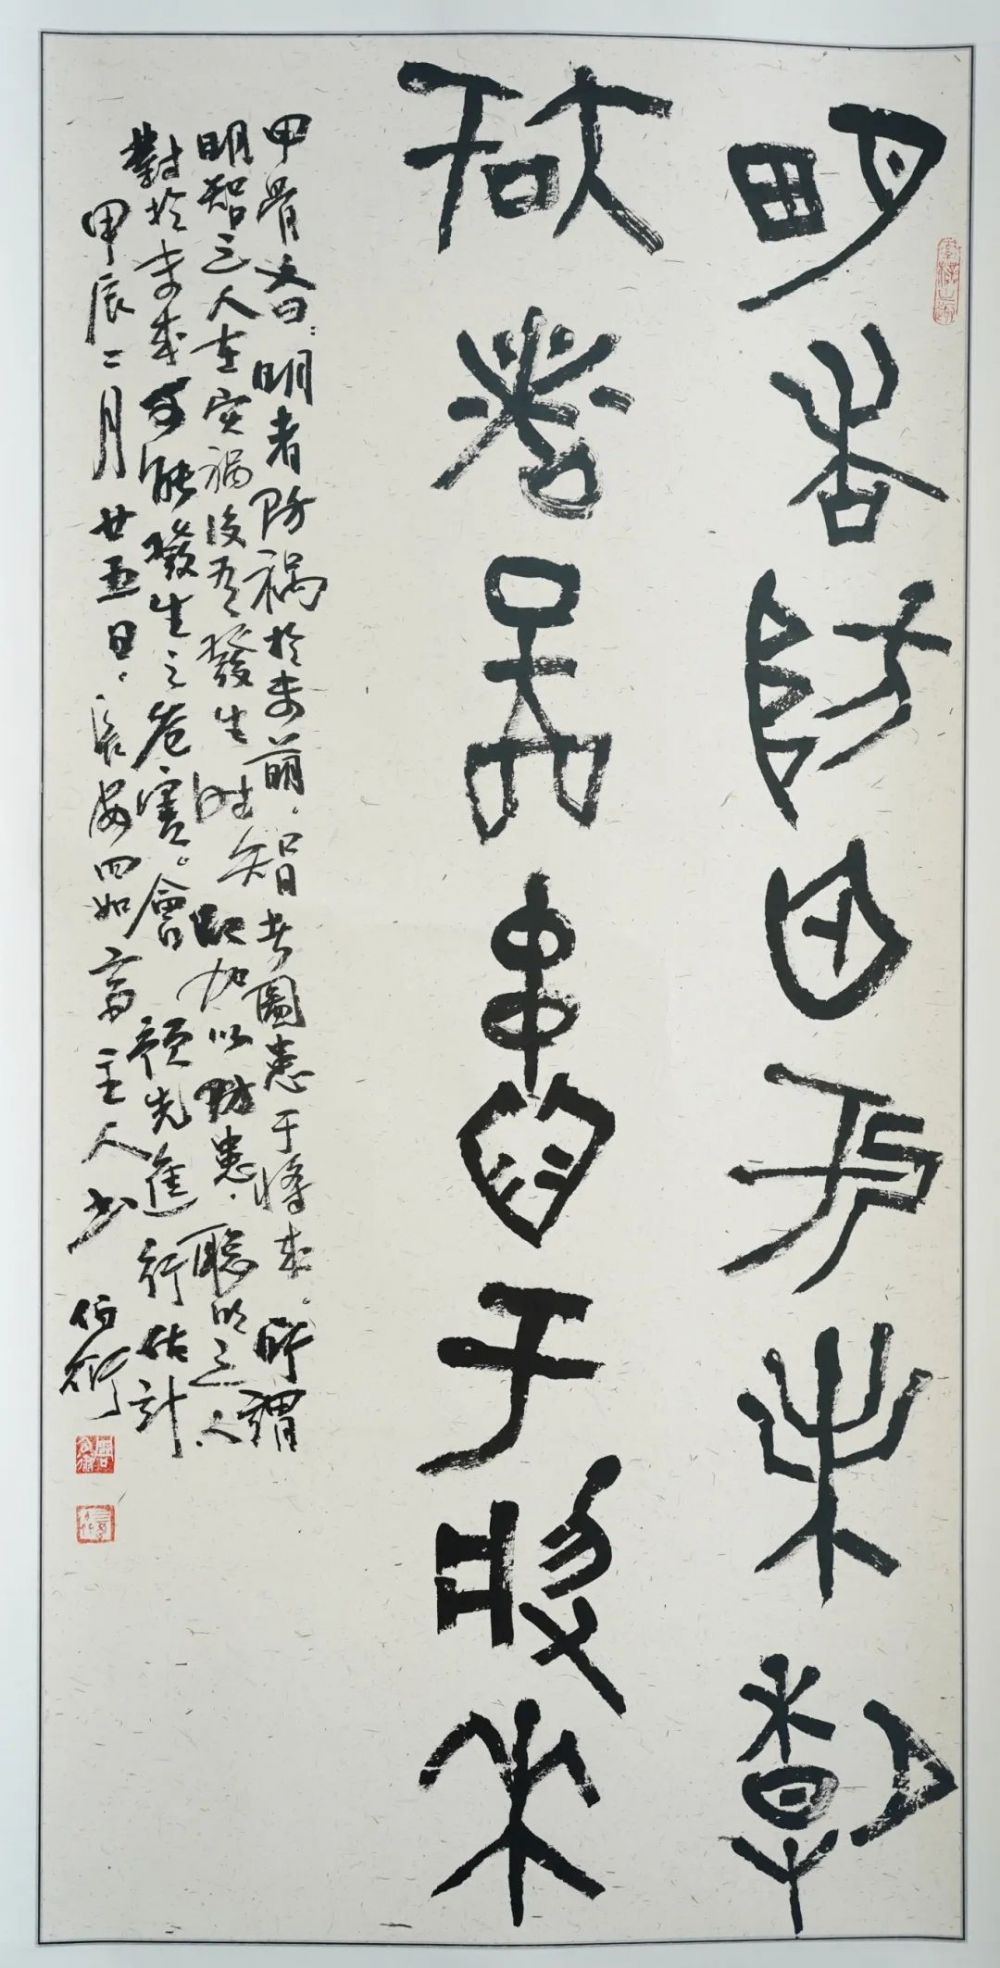 明者防禍於未萌
智者圖患于將來
甲骨文曰：明者防祸於未萌，智者圖患于將來。所謂
明智之人在灾祸没有發生时加以防患，聰明之人
對於未來可能發生之危害。會預先進行估計
甲辰二月廿五日，四如斋主人书